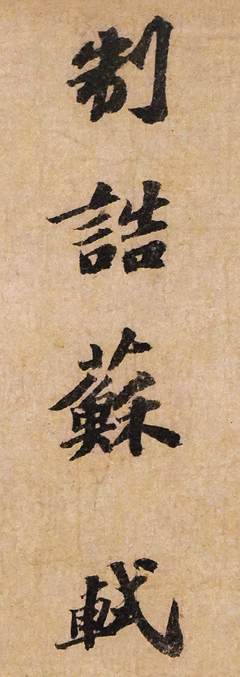 制誥蘇軾